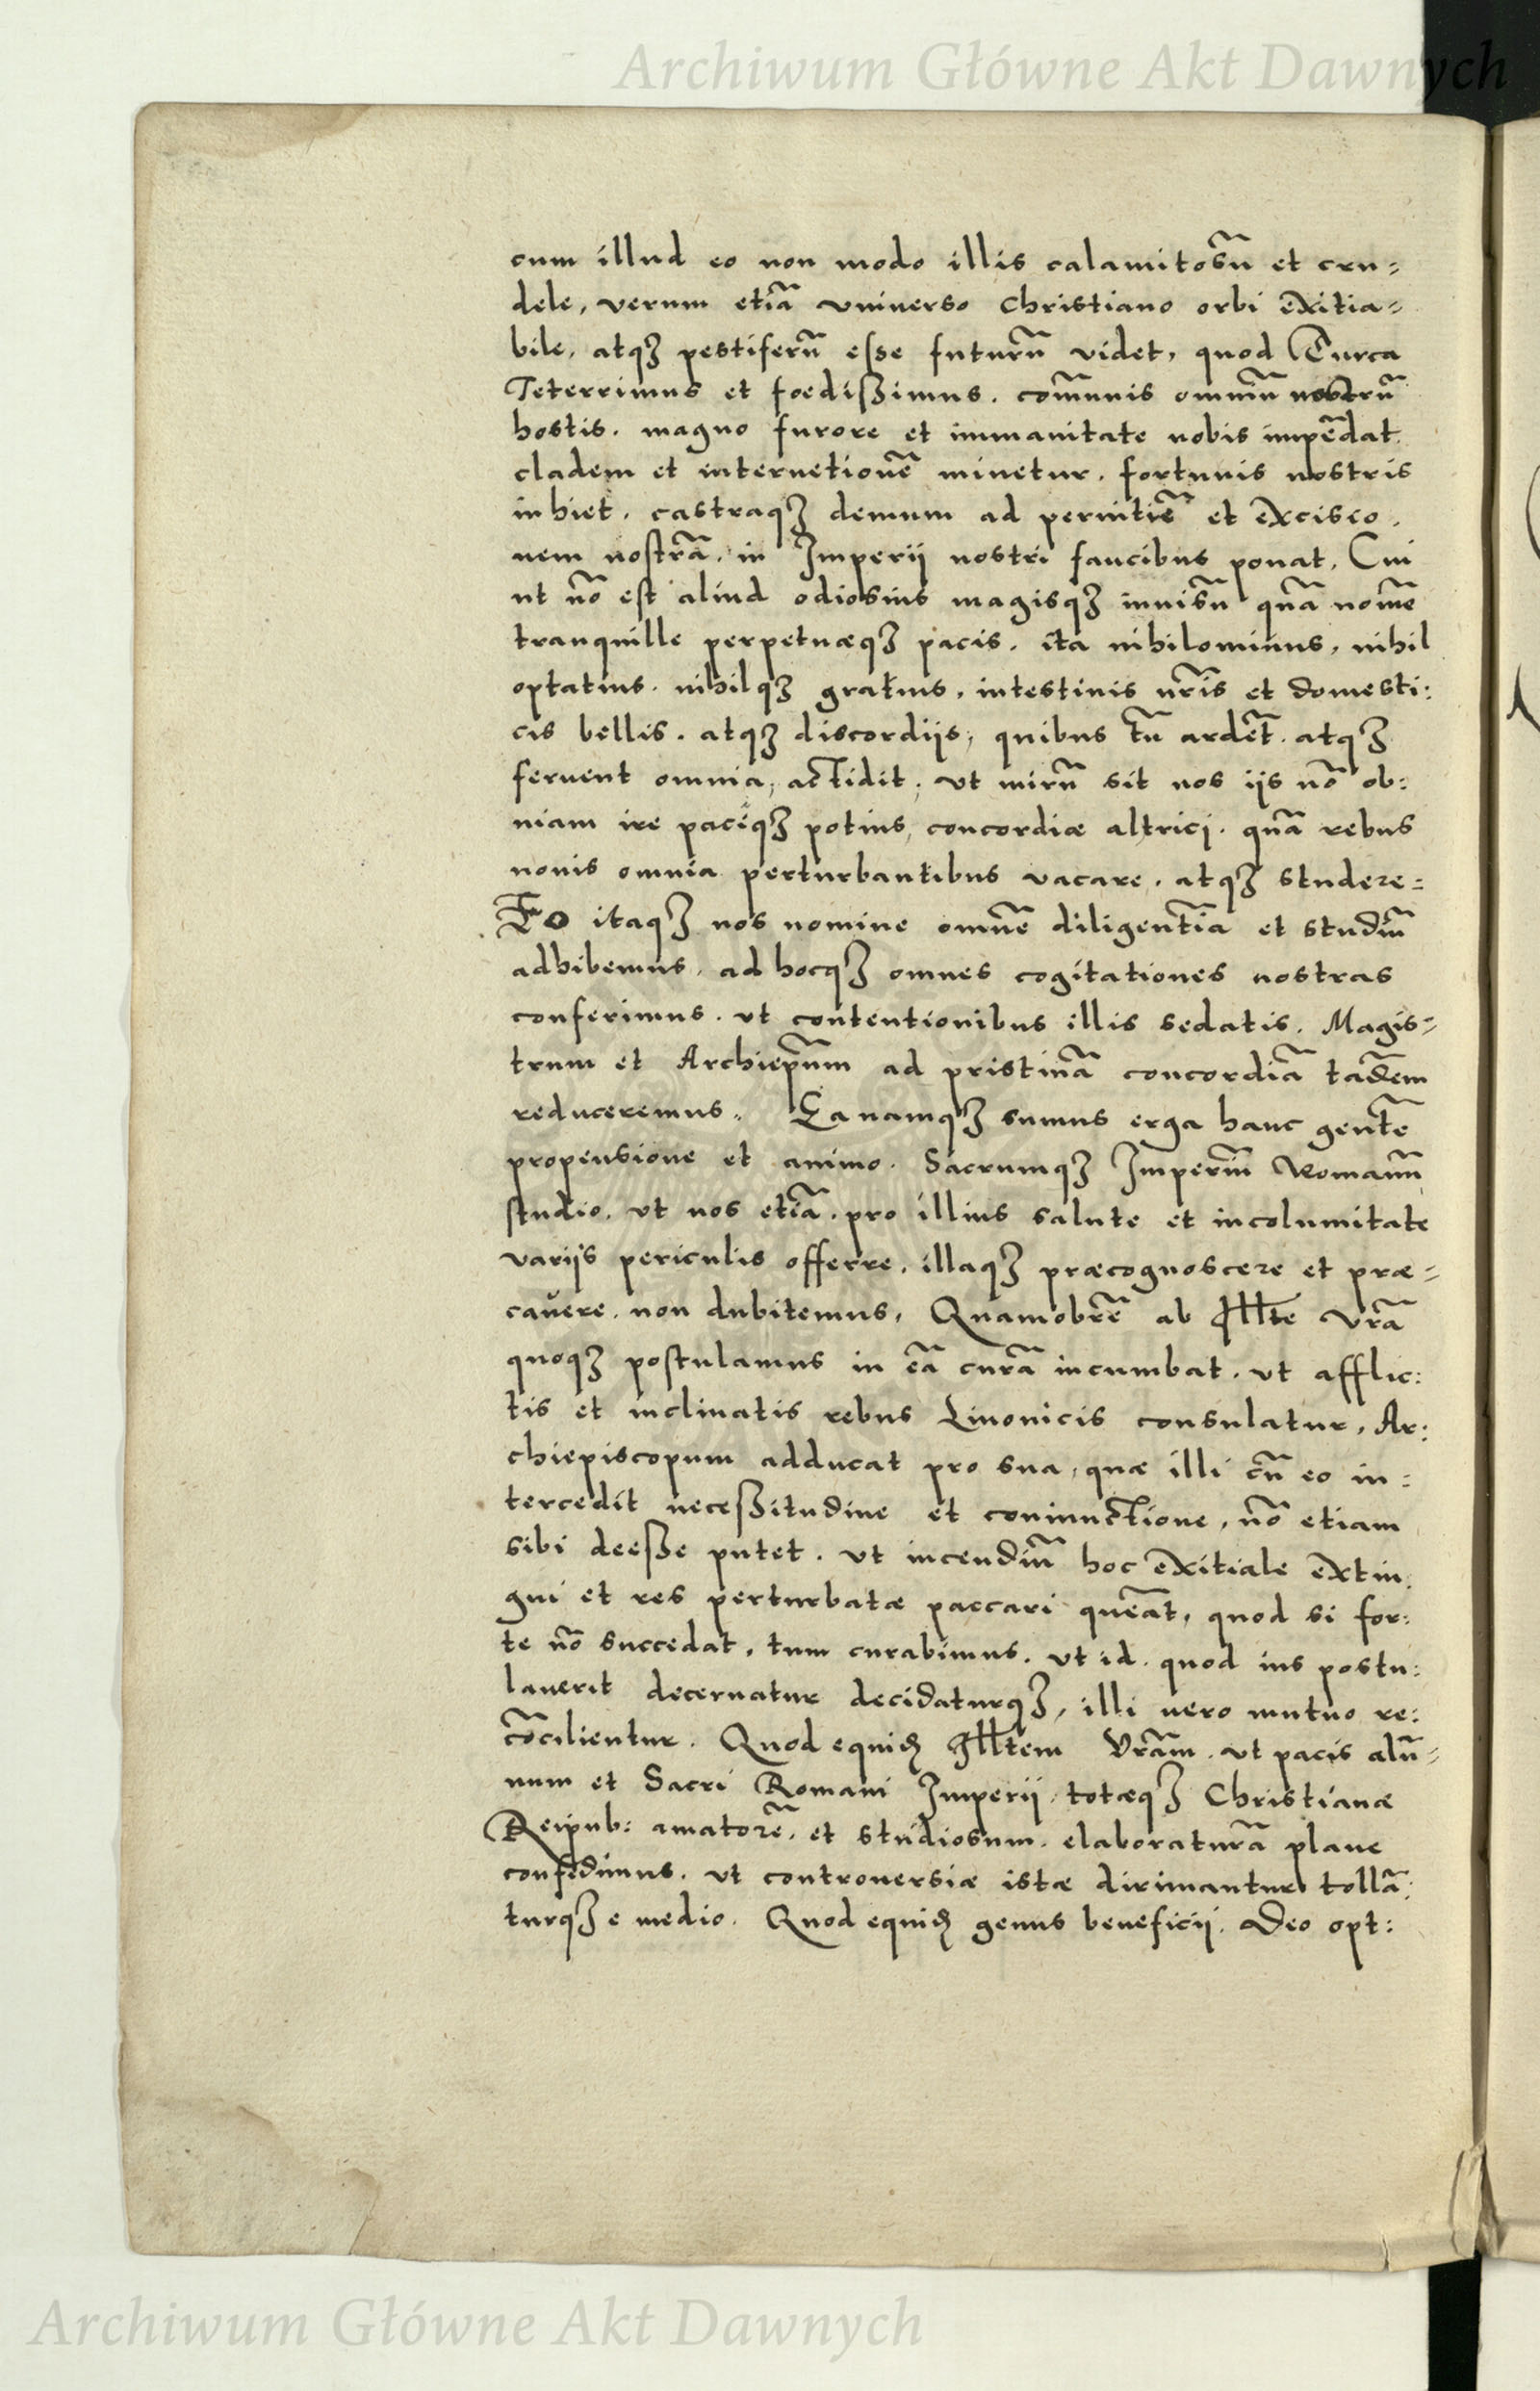 Archiwum Główne Akt Dawnych
cum illud eo non modo illis calamitosũ et cru=
dele, verum etiã vniuerso christiano orbi exitia=
bile, atqꝫ pestiferũ esse futurũ videt, quod Turca
Teterrimus et foedißimus. com̃unis omniũ nostrũ
hostis. magno furore et immanitate nobis impẽdat.
cladem et internetionẽ minetur. fortunis nostris
inhiet. castraqꝫ demum ad pernitiẽ et excisio.
nem nostrã. in Imperii nostri faucibus ponat. Cui
ut nõ est aliud odiosius magisqꝫ inuisũ quã nomẽ
tranquille perpetuæqꝫ pacis. ita nihilominus, nihil
optatius. nihilqꝫ gratius, intestinis nr̃is et domesti:
cis bellis. atqꝫ discordijs, quibus tũ ardẽt. atqꝫ
feruent omnia, actidit, ut mirũ sit nos ijs nõ ob:
uiam ire paciqꝫ potius, concordiæ altrici. quã rebus
nouis omnia perturbantibus vacare. atqꝫ studere=
Eo itaqꝫ nos nomine omnẽ diligentiã et studiũ
adhibemus, ad hocqꝫ omnes cogitationes nostras
conferimus. ut contentionibus illis sedatis. Magis=
trum et Archiep̃um ad pristinã concordiã tãdem
reduceremus. Ea namqꝫ sumus erga hanc gentẽ
propensione et animo. Sacrumqꝫ Imperiũ Romanũ
studio. ut nos etiã. pro illius salute et incolumitate
varijs periculis offerre, illaqꝫ præcognoscere et præ=
cauere. non dubitemus, Quamobrẽ ab Illte Vrã
quoqꝫ postulamus in eã curã incumbat. ut afflic:
tis et inclinatis rebus Liuonicis consulatur, Ar:
chiepiscopum adducat pro sua, quæ illi cũ eo in:
tercedit neceßitudine et coniunctione, nõ etiam
sibi deeße putet. ut incendiũ hoc exitiale extin.
gui et res perturbatæ paccari queãt, quod si for:
te nõ succedat, tum curabimus. ut id. quod ius postu:
lauerit decernatur decidaturqꝫ, illi uero mutuo re:
cõcilientur. Quod equid̃ Illtem Vrãm. ut pacis alũ=
num et Sacri Romani Imperii, totæqꝫ Christianæ
Reipub: amatorẽ. et studiosum. elaboraturã plane
confidimus. ut controuersiæ istæ dirimantur tollã:
turqꝫ e medio. Quod equid̃ genus beneficij. Deo opt:
Archiwum Główne Akt Dawnych